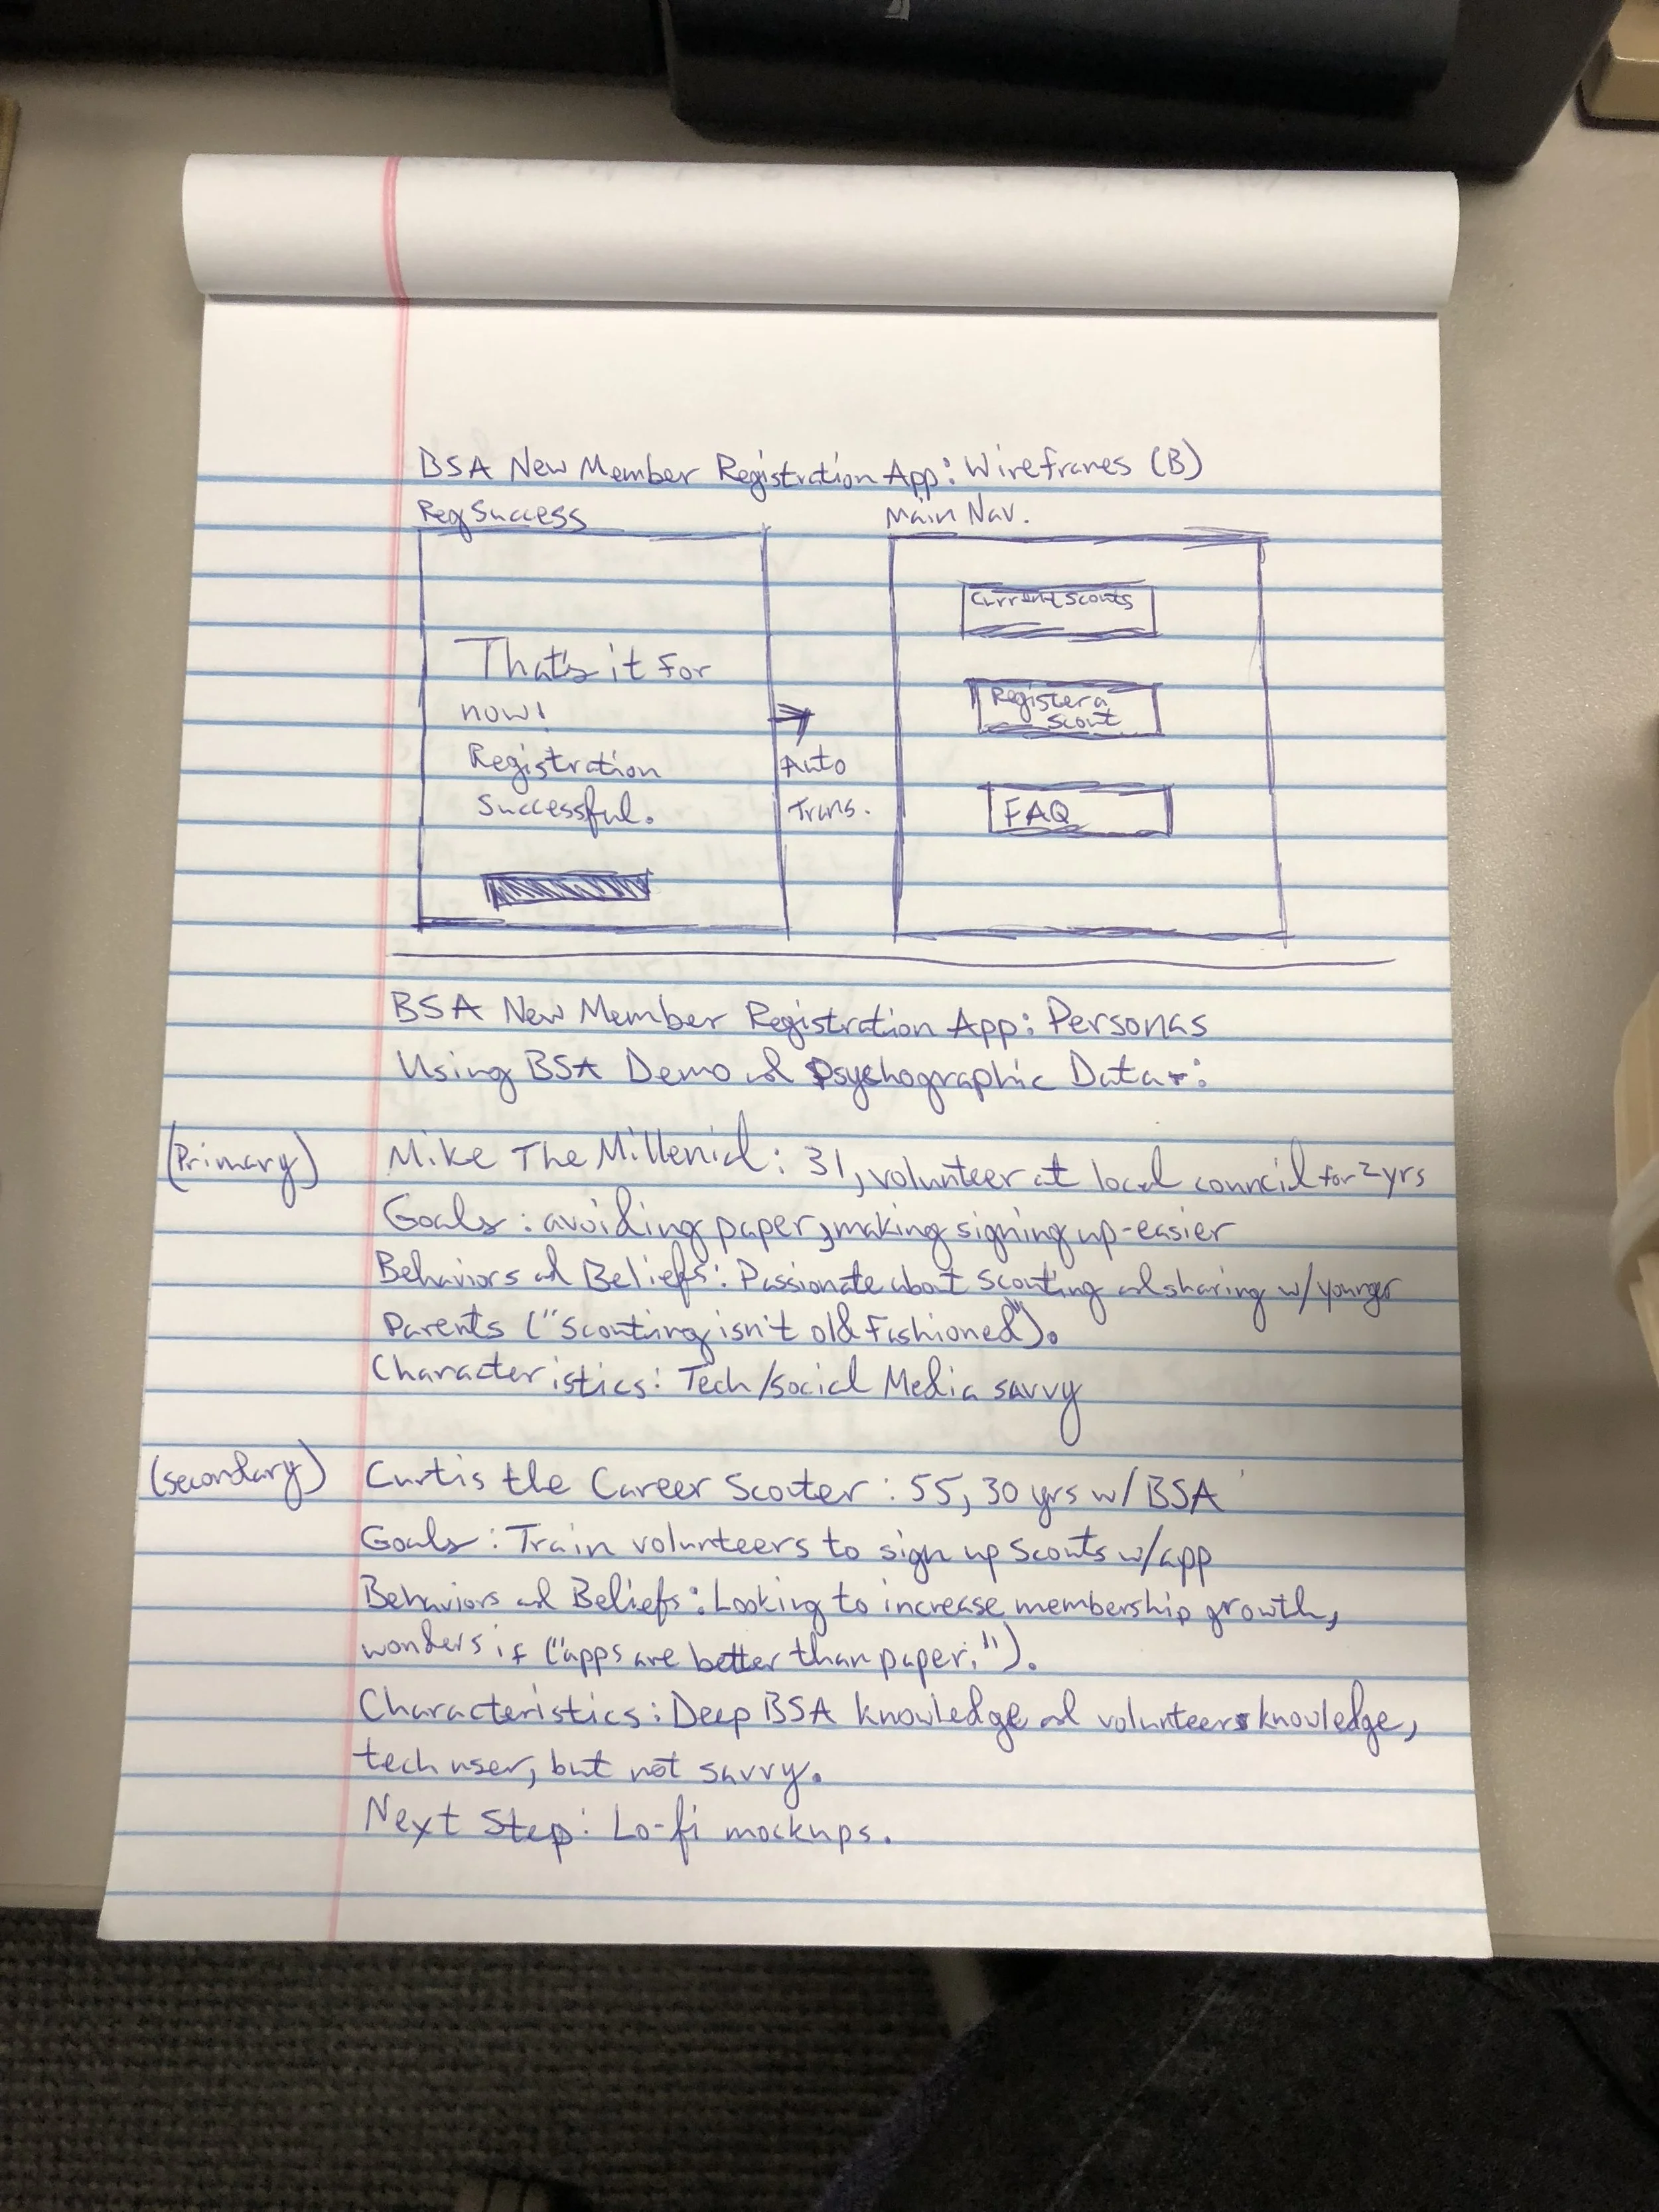 BSA New Member Registration App: Wireframes (B)
Reg Success
Main Nav.
That's it for
now!
Registration
Successful.
Auto
Trans.
Current Scouts
Register a
Scout
FAQ
BSA New Member Registration App: Personas
Using BSA Demo and Psychographic Data:
(Primary) Mike The Millenial: 31, volunteer at local council for 2 yrs
Goals: avoiding paper, making signing up easier
Behaviors and Beliefs: Passionate about Scouting and sharing w/ younger
Parents ("Scouting isn't old fashioned").
Characteristics: Tech/Social Media savvy
(Secondary) Curtis the Career Scouter: 55, 30 yrs w/ BSA
Goals: Train volunteers to sign up Scouts w/ app
Behaviors and Beliefs: Looking to increase membership growth,
wonders if ("apps are better than paper.").
Characteristics: Deep BSA knowledge and volunteer knowledge,
tech user, but not savvy.
Next Step: Lo-fi mockups.